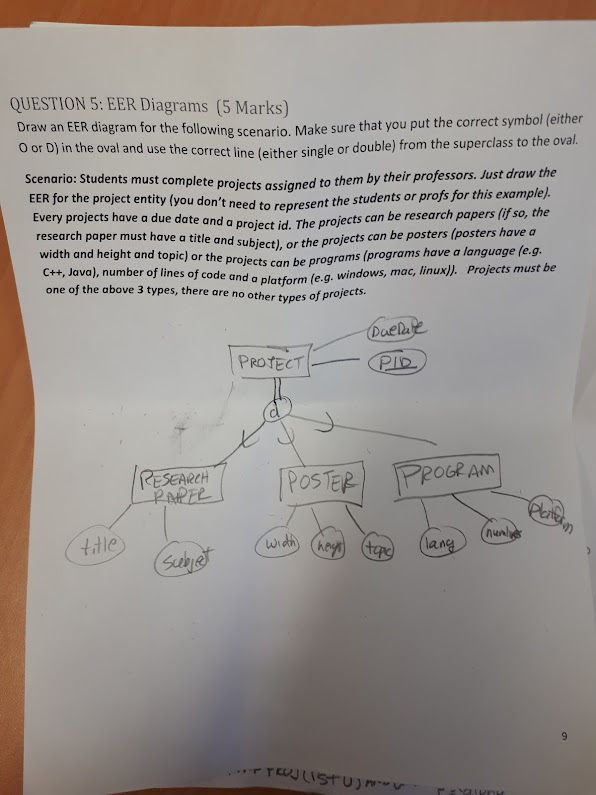 QUESTION 5: EER Diagrams (5 Marks)
Draw an EER diagram for the following scenario. Make sure that you put the correct symbol (either
O or D) in the oval and use the correct line (either single or double) from the superclass to the oval.
Scenario: Students must complete projects assigned to them by their professors. Just draw the
EER for the project entity (you don't need to represent the students or profs for this example).
Every projects have a due date and a project id. The projects can be research papers (if so, the
research paper must have a title and subject), or the projects can be posters (posters have a
width and height and topic) or the projects can be programs (programs have a language (e.g.
C++, Java), number of lines of code and a platform (e.g. windows, mac, linux)). Projects must be
one of the above 3 types, there are no other types of projects.
DueDate
PROJECT
PID
d
RESEARCH
PAPER
POSTER
PROGRAM
title
subject
width
topic
lang
platform
9